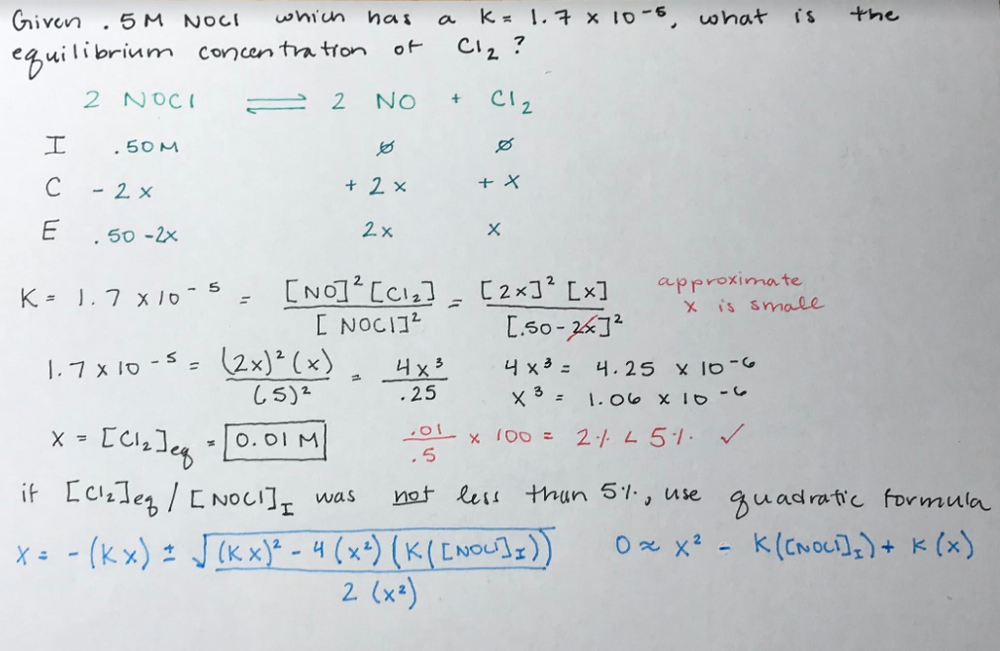 Given .5M NOCl which has a K = 1.7 x 10⁻⁵, what is the
equilibrium concentration of Cl₂?
2 NOCl ⇌ 2 NO + Cl₂
I .50M ∅ ∅
C - 2x + 2x + x
E .50 -2x 2x x
K = 1.7 x 10⁻⁵ = [NO]² [Cl₂] / [NOCl]² = [2x]² [x] / [.50 - 2x]² approximate
x is small
1.7 x 10⁻⁵ = (2x)² (x) / (.5)² = 4x³ / .25 4x³ = 4.25 x 10⁻⁶
x³ = 1.06 x 10⁻⁶
x = [Cl₂]eq = 0.01 M .01 / .5 x 100 = 2% < 5% ✓
if [Cl₂]eq / [NOCl]I was not less than 5%, use quadratic formula
x = -(Kx) ± √((Kx)² - 4(x²)(K([NOCl]I))) / 2(x²) 0 ≈ x² - K([NOCl]I) + K(x)